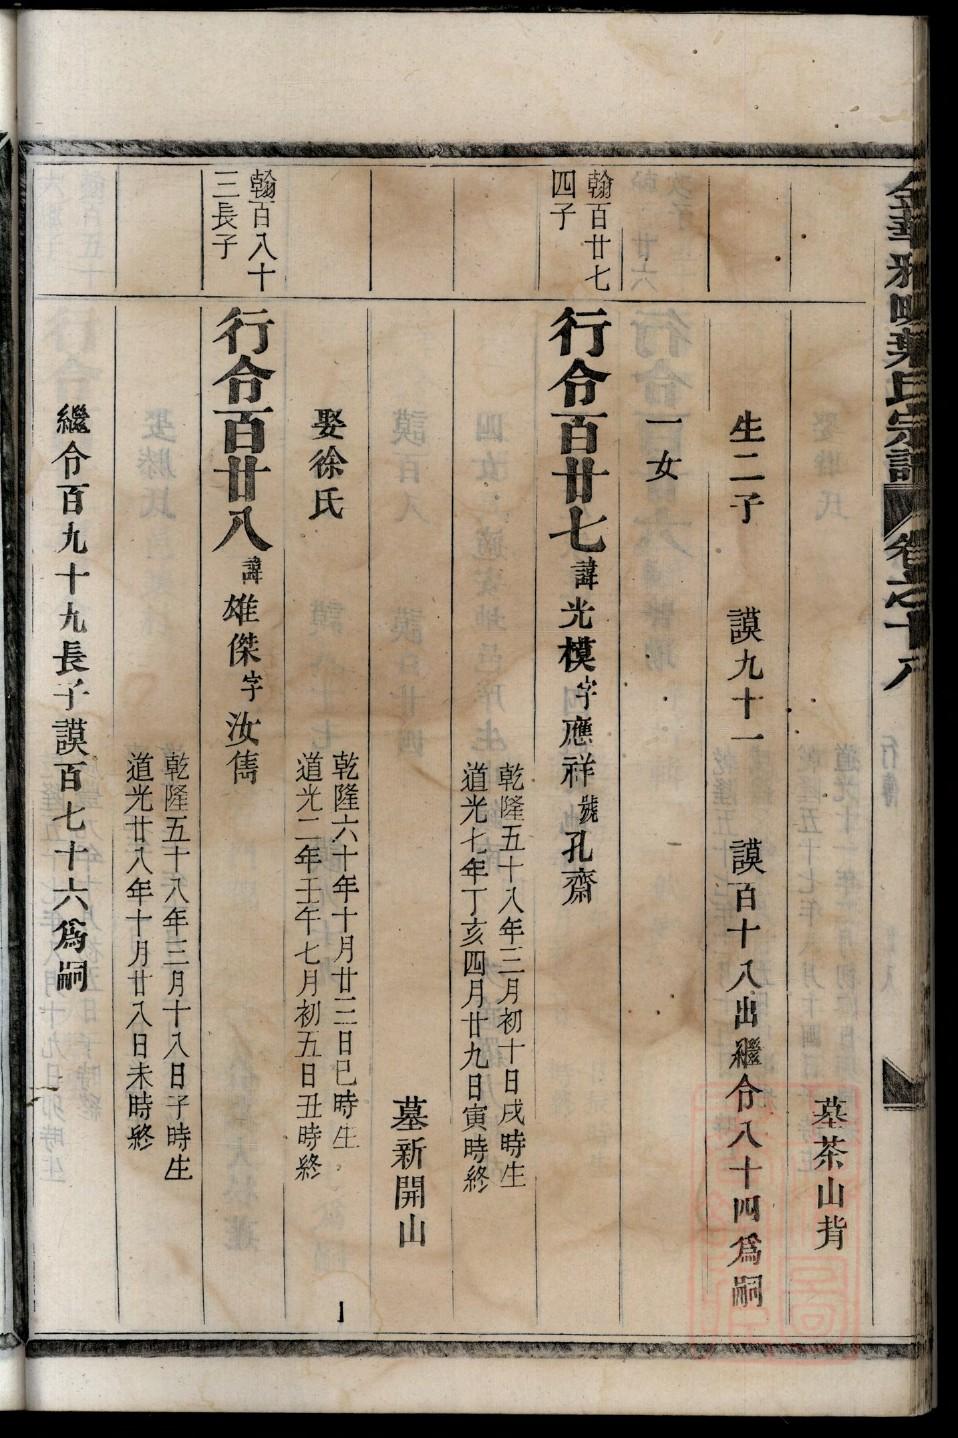 金華雅畈葉氏宗譜 卷之十八 行傳
墓茶山背
生二子 謨九十一 謨百十八出繼令八十四爲嗣
一女
翰百廿七
四子
行令百廿七 諱光模字應祥號孔齋
乾隆五十八年三月初十日戌時生
道光七年丁亥四月廿九日寅時終
墓新開山
娶徐氏
乾隆六十年十月廿三日巳時生
道光二年壬午七月初五日丑時終
翰百八十
三長子
行令百廿八 諱雄傑字汝雋
乾隆五十八年三月十八日子時生
道光廿八年十月廿八日未時終
繼令百九十九長子謨百七十六爲嗣